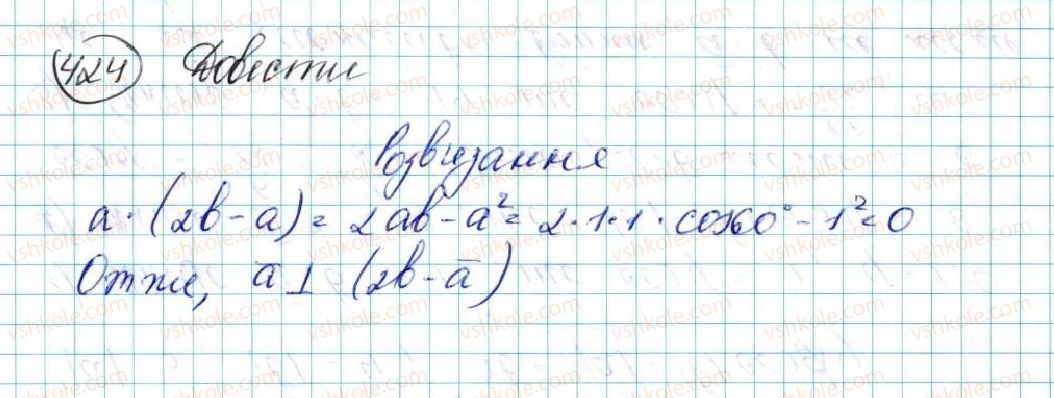 424 Довести
Розв'язання
a · (2b - a) = 2ab - a² = 2·1·1 · cos60° - 1² = 0
Отже, a̅ ⊥ (2b - a̅)